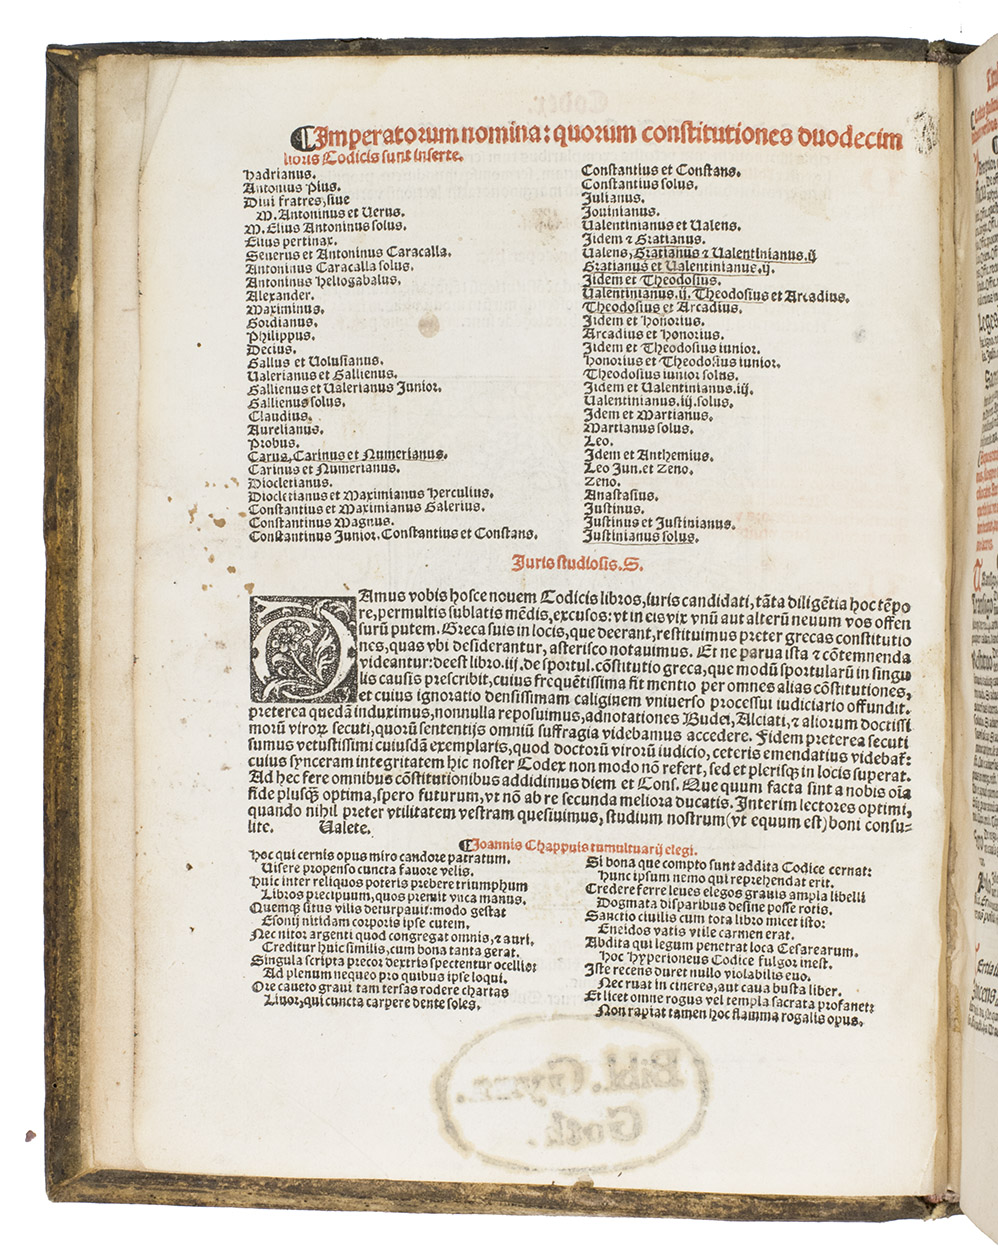 ¶Imperatorum nomina: quorum constitutiones duodecim
libris Codicis sunt inserte.
Hadrianus.
Antonius Pius.
Diui fratres, siue
M. Antoninus et Verus.
M. Elius Antoninus solus.
Elius pertinax.
Seuerus et Antoninus Caracalla.
Antoninus Caracalla solus.
Antoninus Heliogabalus.
Alexander.
Maximinus.
Gordianus.
Philippus.
Decius.
Gallus et Volusianus.
Valerianus et Gallienus.
Gallienus et Valerianus Junior.
Gallienus solus.
Claudius.
Aurelianus.
Probus.
Carus, Carinus et Numerianus.
Carinus et Numerianus.
Diocletianus.
Diocletianus et Maximianus Herculius.
Constantius et Maximianus Galerius.
Constantinus Magnus.
Constantinus Junior. Constantius et Constans.
Constantius et Constans.
Constantius solus.
Julianus.
Jouinianus.
Valentinianus et Valens.
Jidem ⁊ Gratianus.
Valens, Gratianus ⁊ Valentinianus.ij
Gratianus et Valentinianus.ij.
Jidem et Theodosius.
Valentinianus.ij. Theodosius et Arcadius.
Theodosius et Arcadius.
Jidem et Honorius.
Arcadius et Honorius.
Jidem et Theodosius iunior.
Honorius et Theodosius iunior.
Theodosius iunior solus.
Jidem et Valentinianus.iij.
Valentinianus.iij.solus.
Idem et Martianus.
Martianus solus.
Leo.
Idem et Anthemius.
Leo Jun.et Zeno.
Zeno.
Anastasius.
Justinus.
Justinus et Justinianus.
Justinianus solus.
Juris studiosis. S.
DAmus vobis hosce nouem Codicis libros, iuris candidati, tãta diligẽtia hoc tẽpo
re, permultis sublatis mẽdis, excusos: vt in eis vix vnũ aut alterũ neuum vos offen
surũ putem. Greca suis in locis, que deerant, restituimus preter grecas constitutio
nes, quas vbi desiderantur, asterisco notauimus. Et ne parua ista ⁊ cõtemnenda
videantur: deest libro.iij.de sportul. cõstitutio greca, que modũ sportularũ in singu
lis causis prescribit, cuius frequẽtissima fit mentio per omnes alias cõstitutiones,
et cuius ignoratio densissimam caliginem vniuerso processui iudiciario offundit.
preterea quedã induximus, nonnulla reposuimus, adnotationes Budei, Alciati, ⁊ aliorum doctissi
morũ viroꝝ secuti, quorũ sententijs omniũ suffragia videbamus accedere. Fidem preterea secuti
sumus vetustissimi cuiusdã exemplaris, quod doctorũ virorũ iudicio, ceteris emendatius videbat̃:
cuius synceram integritatem hic noster Codex non modo nõ refert, sed et plerisqꝫ in locis superat.
Ad hec fere omnibus cõstitutionibus addidimus diem et Cons. Que quum facta sint a nobis oĩa
fide plusqꝫ optima, spero futurum, vt nõ ab re secunda meliora ducatis. Interim lectores optimi,
quando nihil preter vtilitatem vestram quesiuimus, studium nostrum (vt equum est) boni consu-
lite. Valete.
¶Joannis Chappuis tumultuarij elegi.
Hoc qui cernis opus miro candore patratum.
Visere propenso cuncta fauore velis.
Huic inter reliquos poteris prebere triumphum
Libros precipuum, quos premit vnca manus.
Quemqꝫ situs vilis deturpauit: modo gestat
Esonij nitidam corporis ipse cutem.
Nec nitor argenti quod congregat omnis, ⁊ auri,
Creditur huic similis, cum bona tanta gerat.
Singula scripta precor dextris spectentur ocellis:
Ad plenum nequeo pro quibus ipse loqui.
Ore caueto graui tam tersas rodere chartas
Liuor, qui cuncta carpere dente soles.
Si bona que compto sunt addita Codice cernat:
Hunc ipsum nemo qui reprehendat erit.
Credere ferre leues elegos grauis ampla libelli
Dogmata disparibus desine posse rotis.
Sanctio ciuilis cum tota libro micet isto:
Eneidos vatis vile carmen erat.
Abdita qui legum penetrat loca Cesarearum.
Hoc Hyperioneus Codice fulgor inest.
Iste recens duret nullo violabilis euo.
Nec ruat in cineres, aut caua busta liber.
Et licet omne rogus vel templa sacrata profanet:
Non rapiat tamen hoc flamma rogalis opus.
Bibl. Gymn.
Goth.